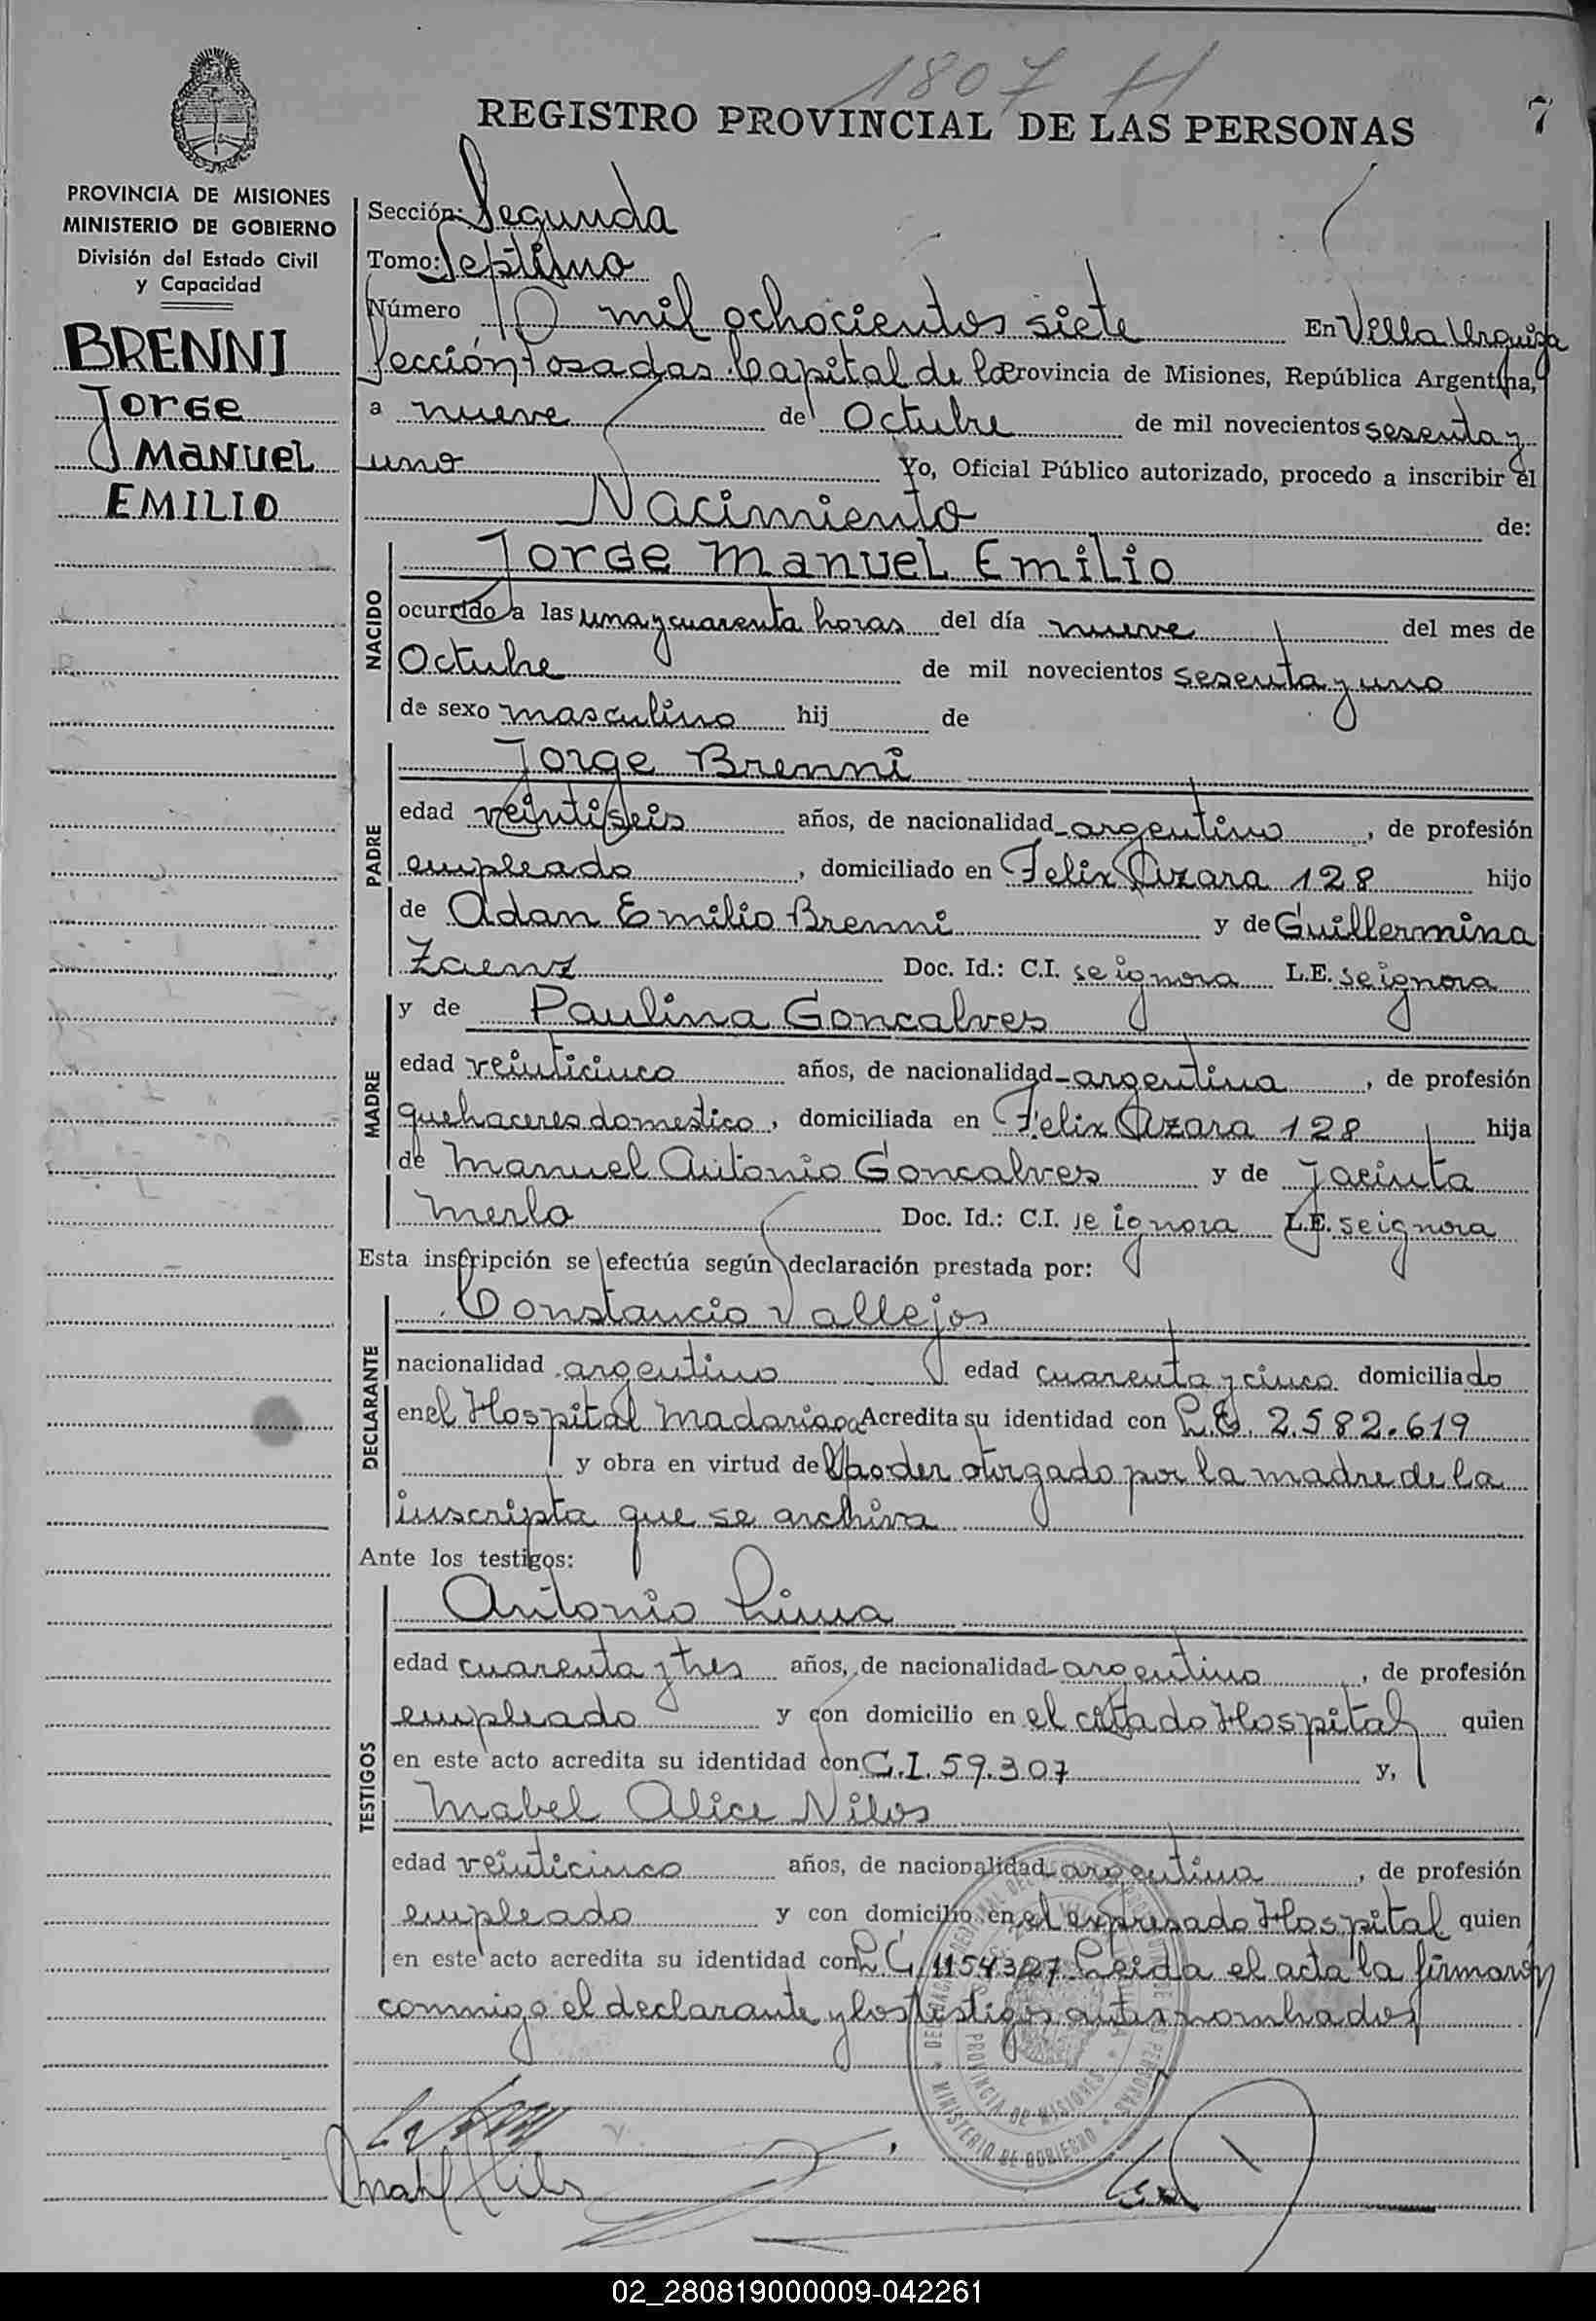 1807 H
REGISTRO PROVINCIAL DE LAS PERSONAS
7
PROVINCIA DE MISIONES
MINISTERIO DE GOBIERNO
División del Estado Civil
y Capacidad
BRENNI
Jorge
Manuel
EMILIO
Sección: Segunda
Tomo: Septimo
Número mil ochocientos siete En Villa Urquiza
Sección Posadas Capital de la Provincia de Misiones, República Argentina,
a nueve de Octubre de mil novecientos sesenta y
uno Yo, Oficial Público autorizado, procedo a inscribir el
Nacimiento de:
NACIDO
Jorge Manuel Emilio
ocurrido a las una y cuarenta horas del día nueve del mes de
Octubre de mil novecientos sesenta y uno
de sexo masculino hij de
PADRE
Jorge Brenni
edad veintiseis años, de nacionalidad argentino, de profesión
empleado, domiciliado en Felix Azara 128 hijo
de Adan Emilio Brenni y de Guillermina
Zaenz Doc. Id.: C.I. se ignora L.E. se ignora
MADRE
y de Paulina Goncalves
edad veinticinco años, de nacionalidad argentina, de profesión
quehaceres domestico, domiciliada en Felix Azara 128 hija
de Manuel Antonio Goncalves y de Jacinta
Merlo Doc. Id.: C.I. se ignora L.E. se ignora
Esta inscripción se efectúa según declaración prestada por:
DECLARANTE
Constancio Vallejos
nacionalidad argentino edad cuarenta y cinco domiciliado
en el Hospital Madariaga Acredita su identidad con L.E. 2.582.619
y obra en virtud de poder otorgado por la madre de la
inscripta que se archiva
Ante los testigos:
TESTIGOS
Antonio Lima
edad cuarenta y tres años, de nacionalidad argentino, de profesión
empleado y con domicilio en el citado Hospital quien
en este acto acredita su identidad con C.I. 59.307 y,
Mabel Alice Nilos
edad veinticinco años, de nacionalidad argentina, de profesión
empleado y con domicilio en el expresado Hospital quien
en este acto acredita su identidad con L.C. 1154327 Leida el acta la firmaron
conmigo el declarante y los testigos antes nombrados
MINISTERIO DE GOBIERNO
PROVINCIA DE MISIONES
02_280819000009-042261